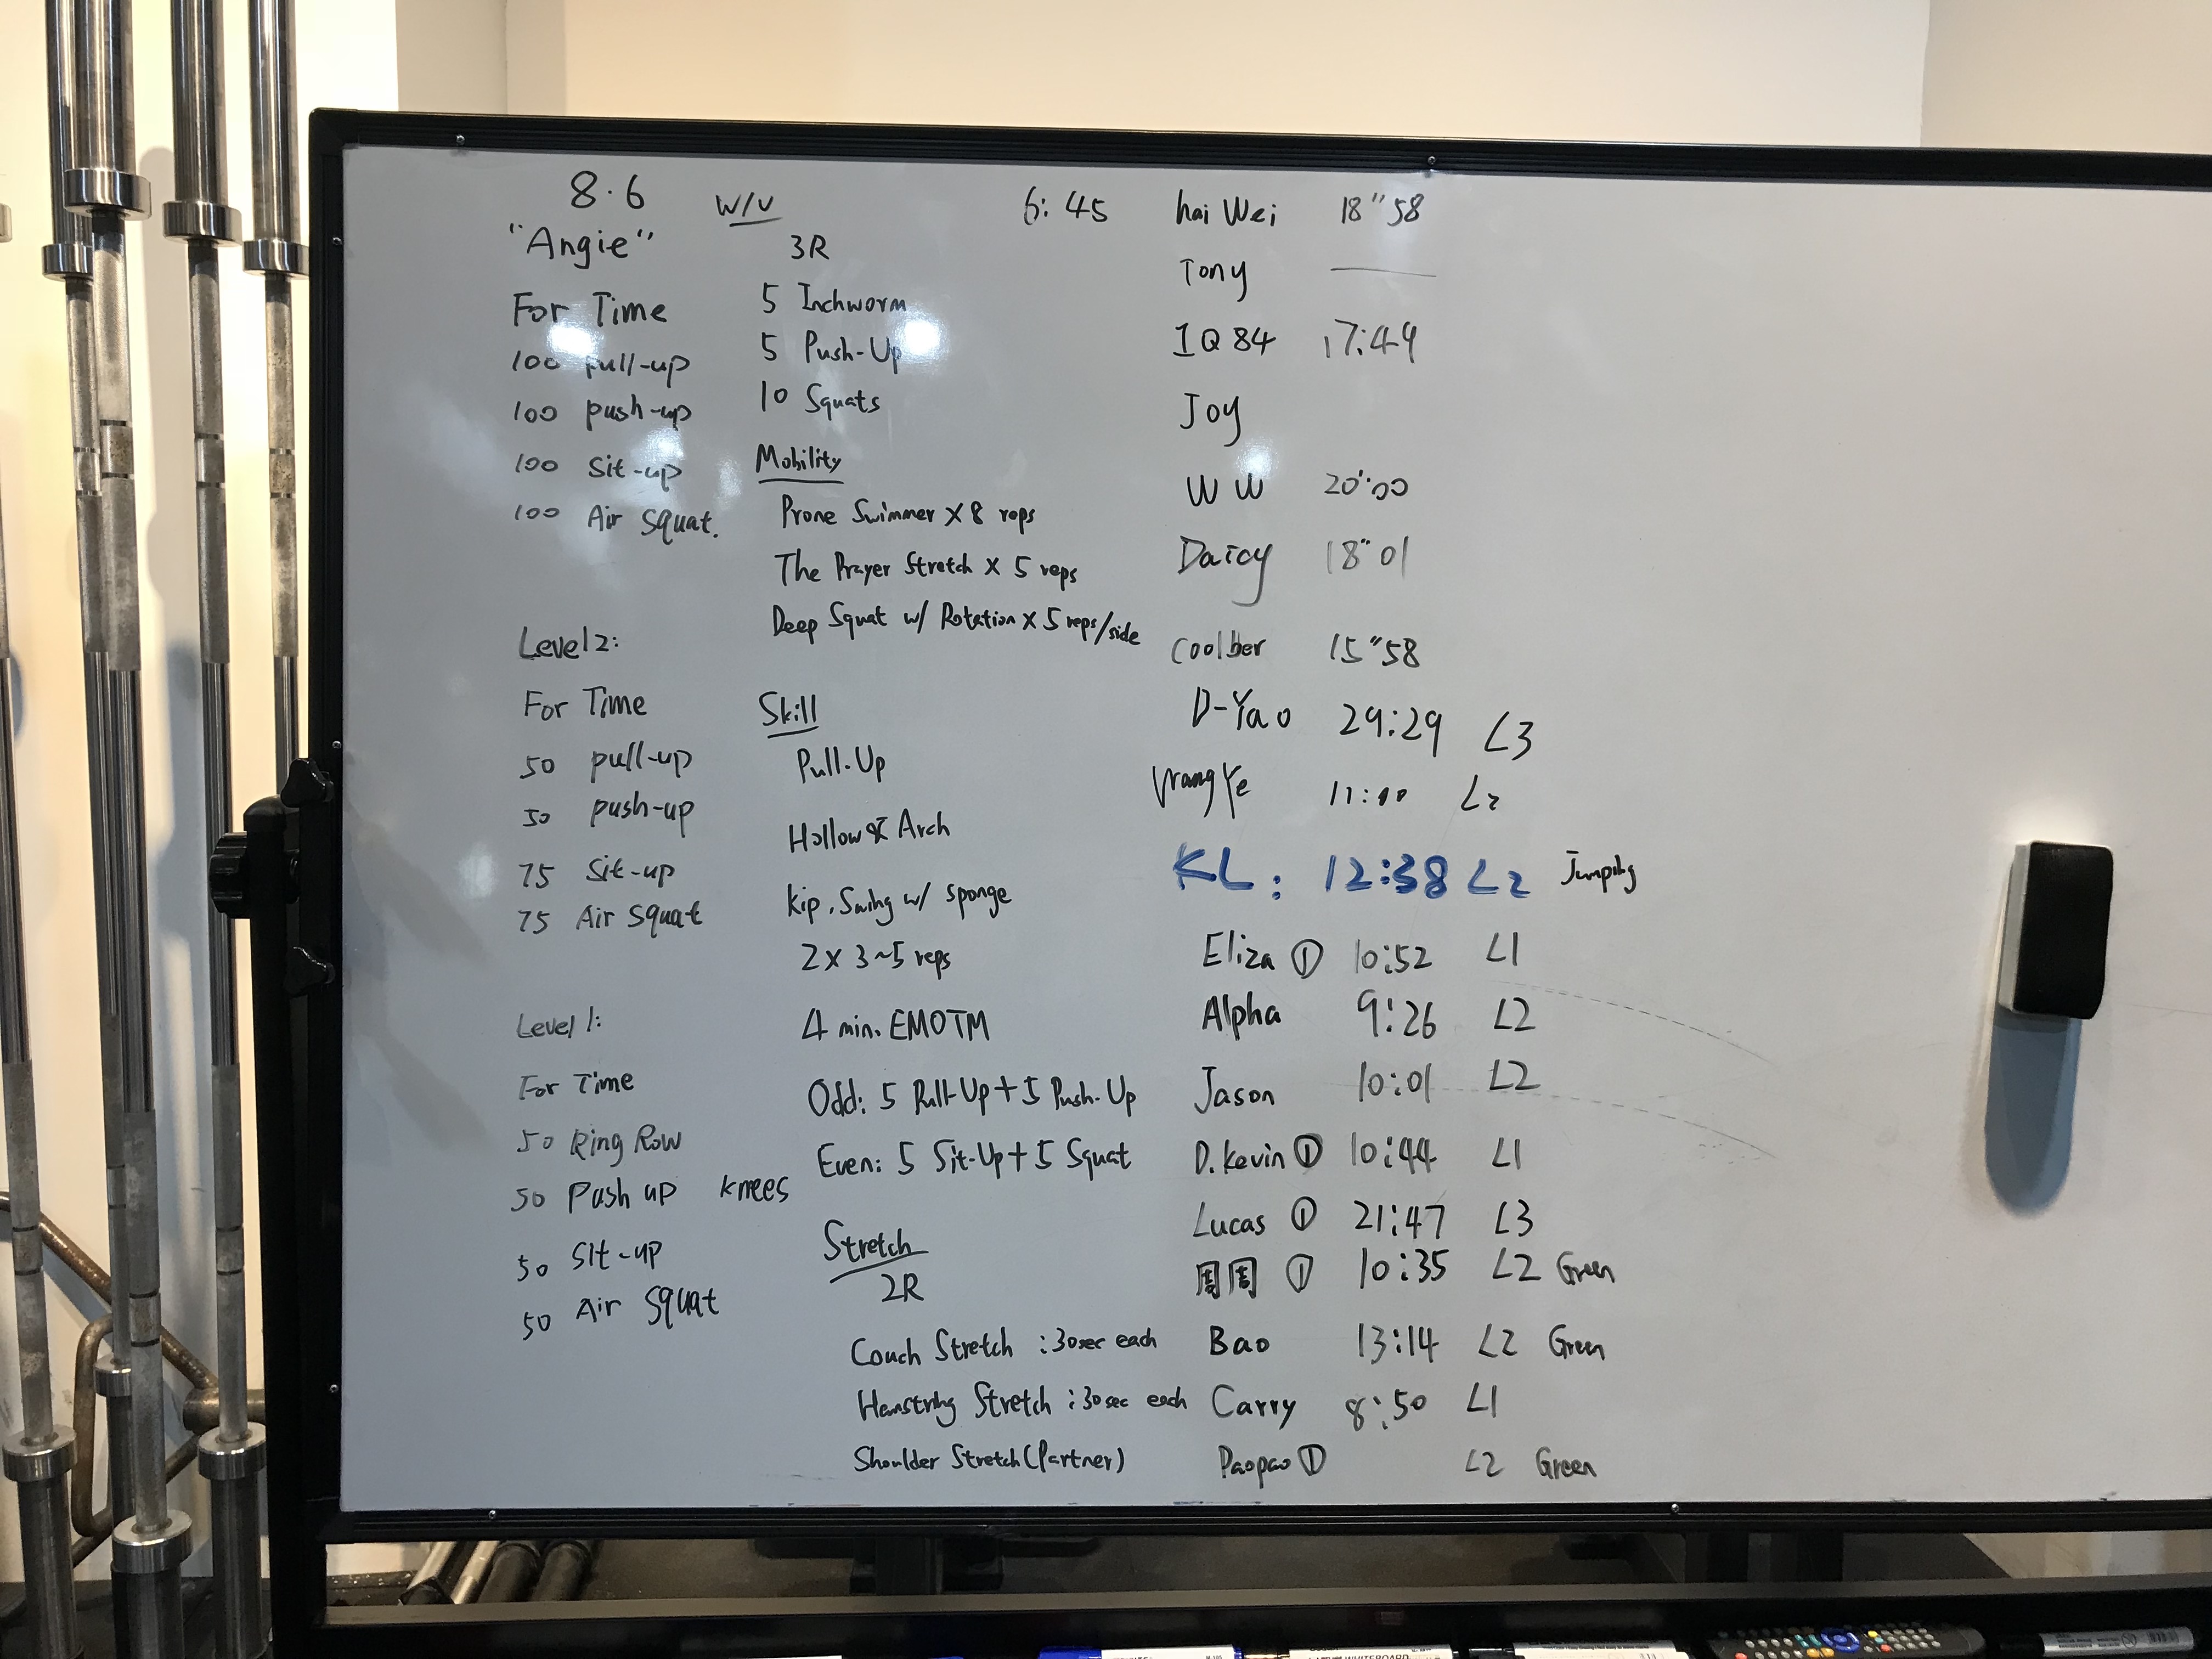 8.6
"Angie"
For Time
100 pull-up
100 push-up
100 Sit-up
100 Air Squat.
Level 2:
For Time
50 pull-up
50 push-up
75 Sit-up
75 Air Squat
Level 1:
For Time
50 Ring Row
50 Push up knees
50 Sit-up
50 Air Squat
W/U
3R
5 Inchworm
5 Push-Up
10 Squats
Mobility
Prone Swimmer X 8 reps
The Prayer Stretch X 5 reps
Deep Squat w/ Rotation X 5 reps/side
Skill
Pull-Up
Hollow & Arch
kip. Swing w/ sponge
2 X 3~5 reps
4 min. EMOTM
Odd: 5 Pull-Up + 5 Push-Up
Even: 5 Sit-Up + 5 Squat
Stretch
2R
Couch Stretch : 30sec each
Hamstring Stretch : 30sec each
Shoulder Stretch (Partner)
6:45
hai Wei 18"58
Tony —
1Q84 17:49
Joy
WW 20':00
Daicy 18"01
Coolber 15"58
D-Yao 29:29 L3
Ye 11:00 L2
KL: 12:38 L2 Jumping
Eliza ① 10:52 L1
Alpha 9:26 L2
Jason 10:01 L2
D.Kevin ① 10:44 L1
Lucas ① 21:47 L3
周周 ① 10:35 L2 Green
Bao 13:14 L2 Green
Carry 8:50 L1
Paopao ① L2 Green
WHITEBOARD